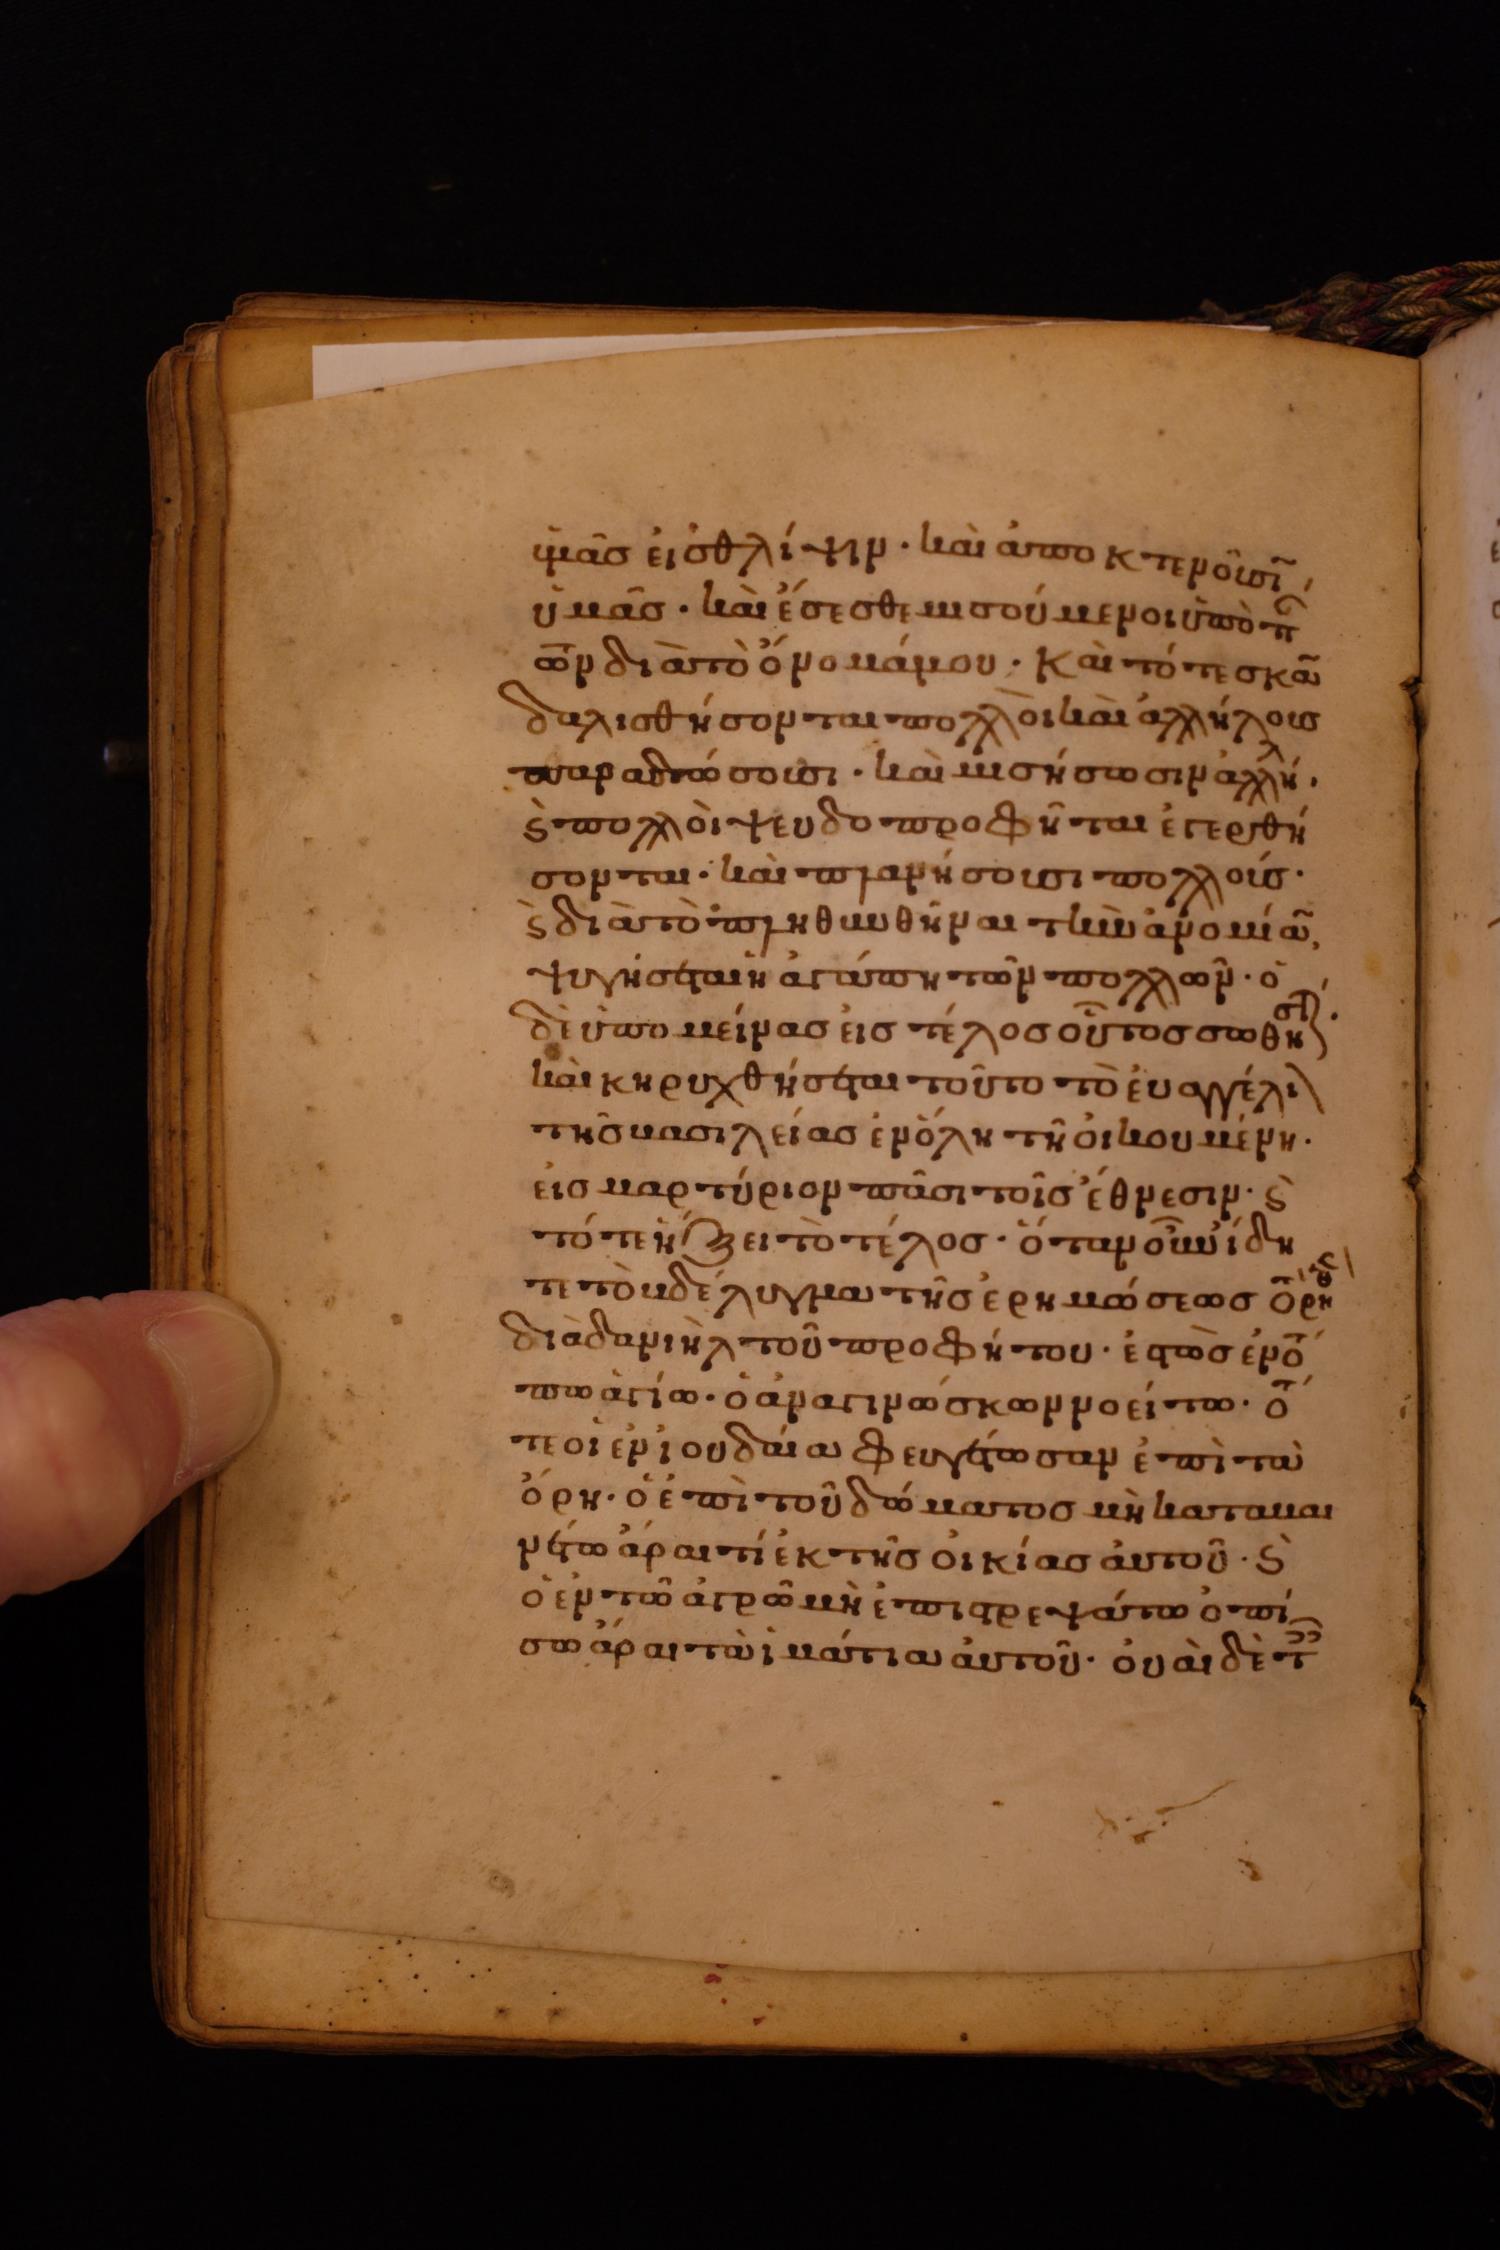 ὑμᾶσ εἰσ θλίψιν · καὶ ἀποκτενοῦσῖ
ὑμᾶσ · καὶ ἔσεσθε μισούμενοι ὑπὸ π
ῶν διὰ τὸ ὄνομά μου · Καὶ τότε σκᾶ
δαλισθήσονται πολλοὶ καὶ ἀλλήλουσ
παραδώσουσι · καὶ μισήσωσιν ἀλλήλ ·
ϗ πολλοὶ ψευδοπροφῆται ἐγερθή
σονται · καὶ πλανήσουσι πολλούσ ·
ϗ διὰ τὸ πληθυνθῆναι τὴν ἀνομίᾶ,
ψυγήσεται ἡ ἀγάπη τῶν πολλῶν · ὁ
δὲ ὑπομείνασ εἰσ τέλοσ οὗτοσ σωθηστ ·
καὶ κηρυχθήσεται τοῦτο τὸ εὐαγγέλι
τῆσ βασιλείασ ἐν ὅλη τῆ οἰκουμένη ·
εἰσ μαρτύριον πᾶσι τοῖσ ἔθνεσιν · ϗ
τότε ἥξει τὸ τέλοσ · ὅταν οὖν ἴδη
τε τὸ βδέλυγμα τῆσ ἐρημώσεωσ τὸ ῥηθὲν
διὰ δανιὴλ τοῦ προφήτου · ἑστὼσ ἐν τό
πω ἁγίω · ὁ ἀναγινώσκων νοείτω · τό
τε οἱ ἐν ἰουδαία φευγέτωσαν ἐπὶ τὰ
ὄρη · ὁ ἐπὶ τοῦ δώματοσ μὴ καταβαι
νέτω ἆραι τί ἐκ τῆσ οἰκίασ αὐτοῦ · ϗ
ὁ ἐν τῶ ἀγρῶ μὴ ἐπιστρεψάτω ὀπί
σω ἆραι τὰ ἱμάτια αὐτοῦ · οὐαὶ δὲ τ